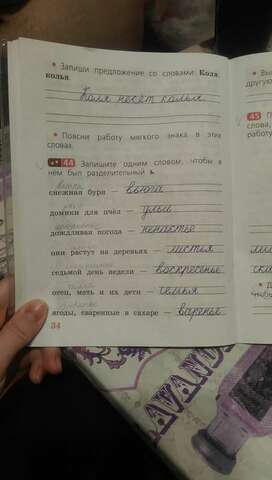 Запиши предложение со словами: Коля,
колья.
Коля несёт колья
Поясни работу мягкого знака в этих
словах.
44 Запишите одним словом, чтобы в
нём был разделительный ь.
снежная буря — вьюга
домики для пчёл — ульи
дождливая погода — ненастье
они растут на деревьях — листья
седьмой день недели — воскресенье
отец, мать и их дети — семья
ягоды, сваренные в сахаре — варенье
34
45
LAVAND